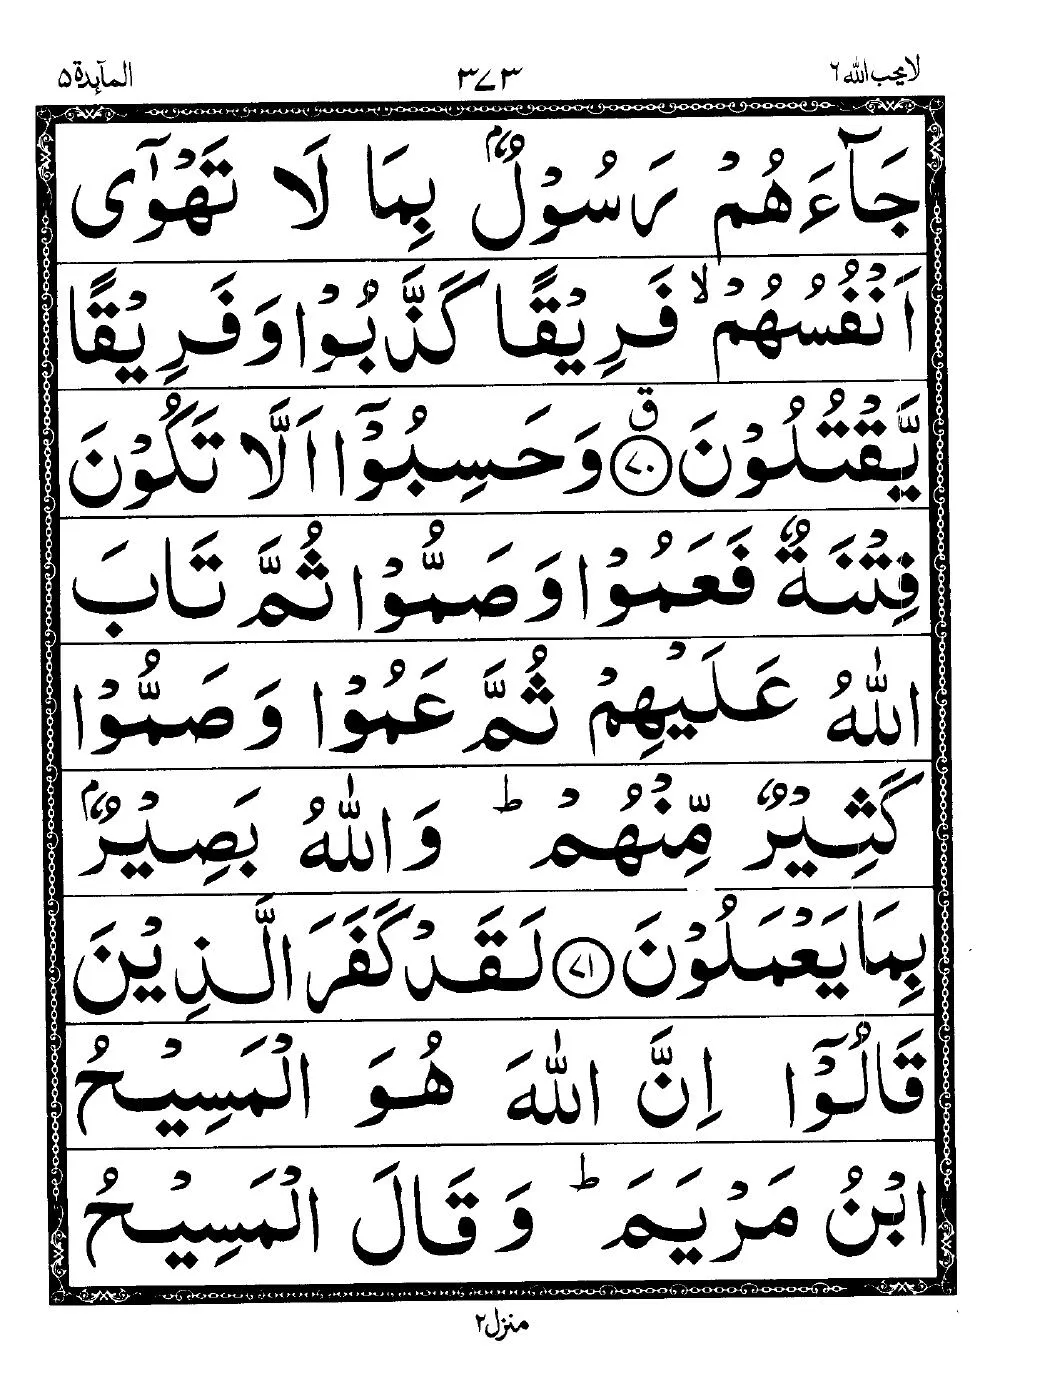 لا يحب الله ٦
٣٧٣
المآىِٕدة ٥
جَآءَهُمْ رَسُوْلٌۢ بِمَا لَا تَهْوٰۤى
اَنْفُسُهُمْ ۙ فَرِيْقًا كَذَّبُوْا وَ فَرِيْقًا
يَّقْتُلُوْنَ ۗ‏ ﴿۷۰﴾ وَ حَسِبُوْۤا اَلَّا تَكُوْنَ
فِتْنَةٌ فَعَمُوْا وَ صَمُّوْا ثُمَّ تَابَ
اللّٰهُ عَلَيْهِمْ ثُمَّ عَمُوْا وَ صَمُّوْا
كَثِيْرٌ مِّنْهُمْ ؕ وَاللّٰهُ بَصِيْرٌۢ
بِمَا يَعْمَلُوْنَ ﴿۷۱﴾ لَقَدْ كَفَرَ الَّذِيْنَ
قَالُوْۤا اِنَّ اللّٰهَ هُوَ الْمَسِيْحُ
ابْنُ مَرْيَمَ ؕ وَ قَالَ الْمَسِيْحُ
منزل ٢